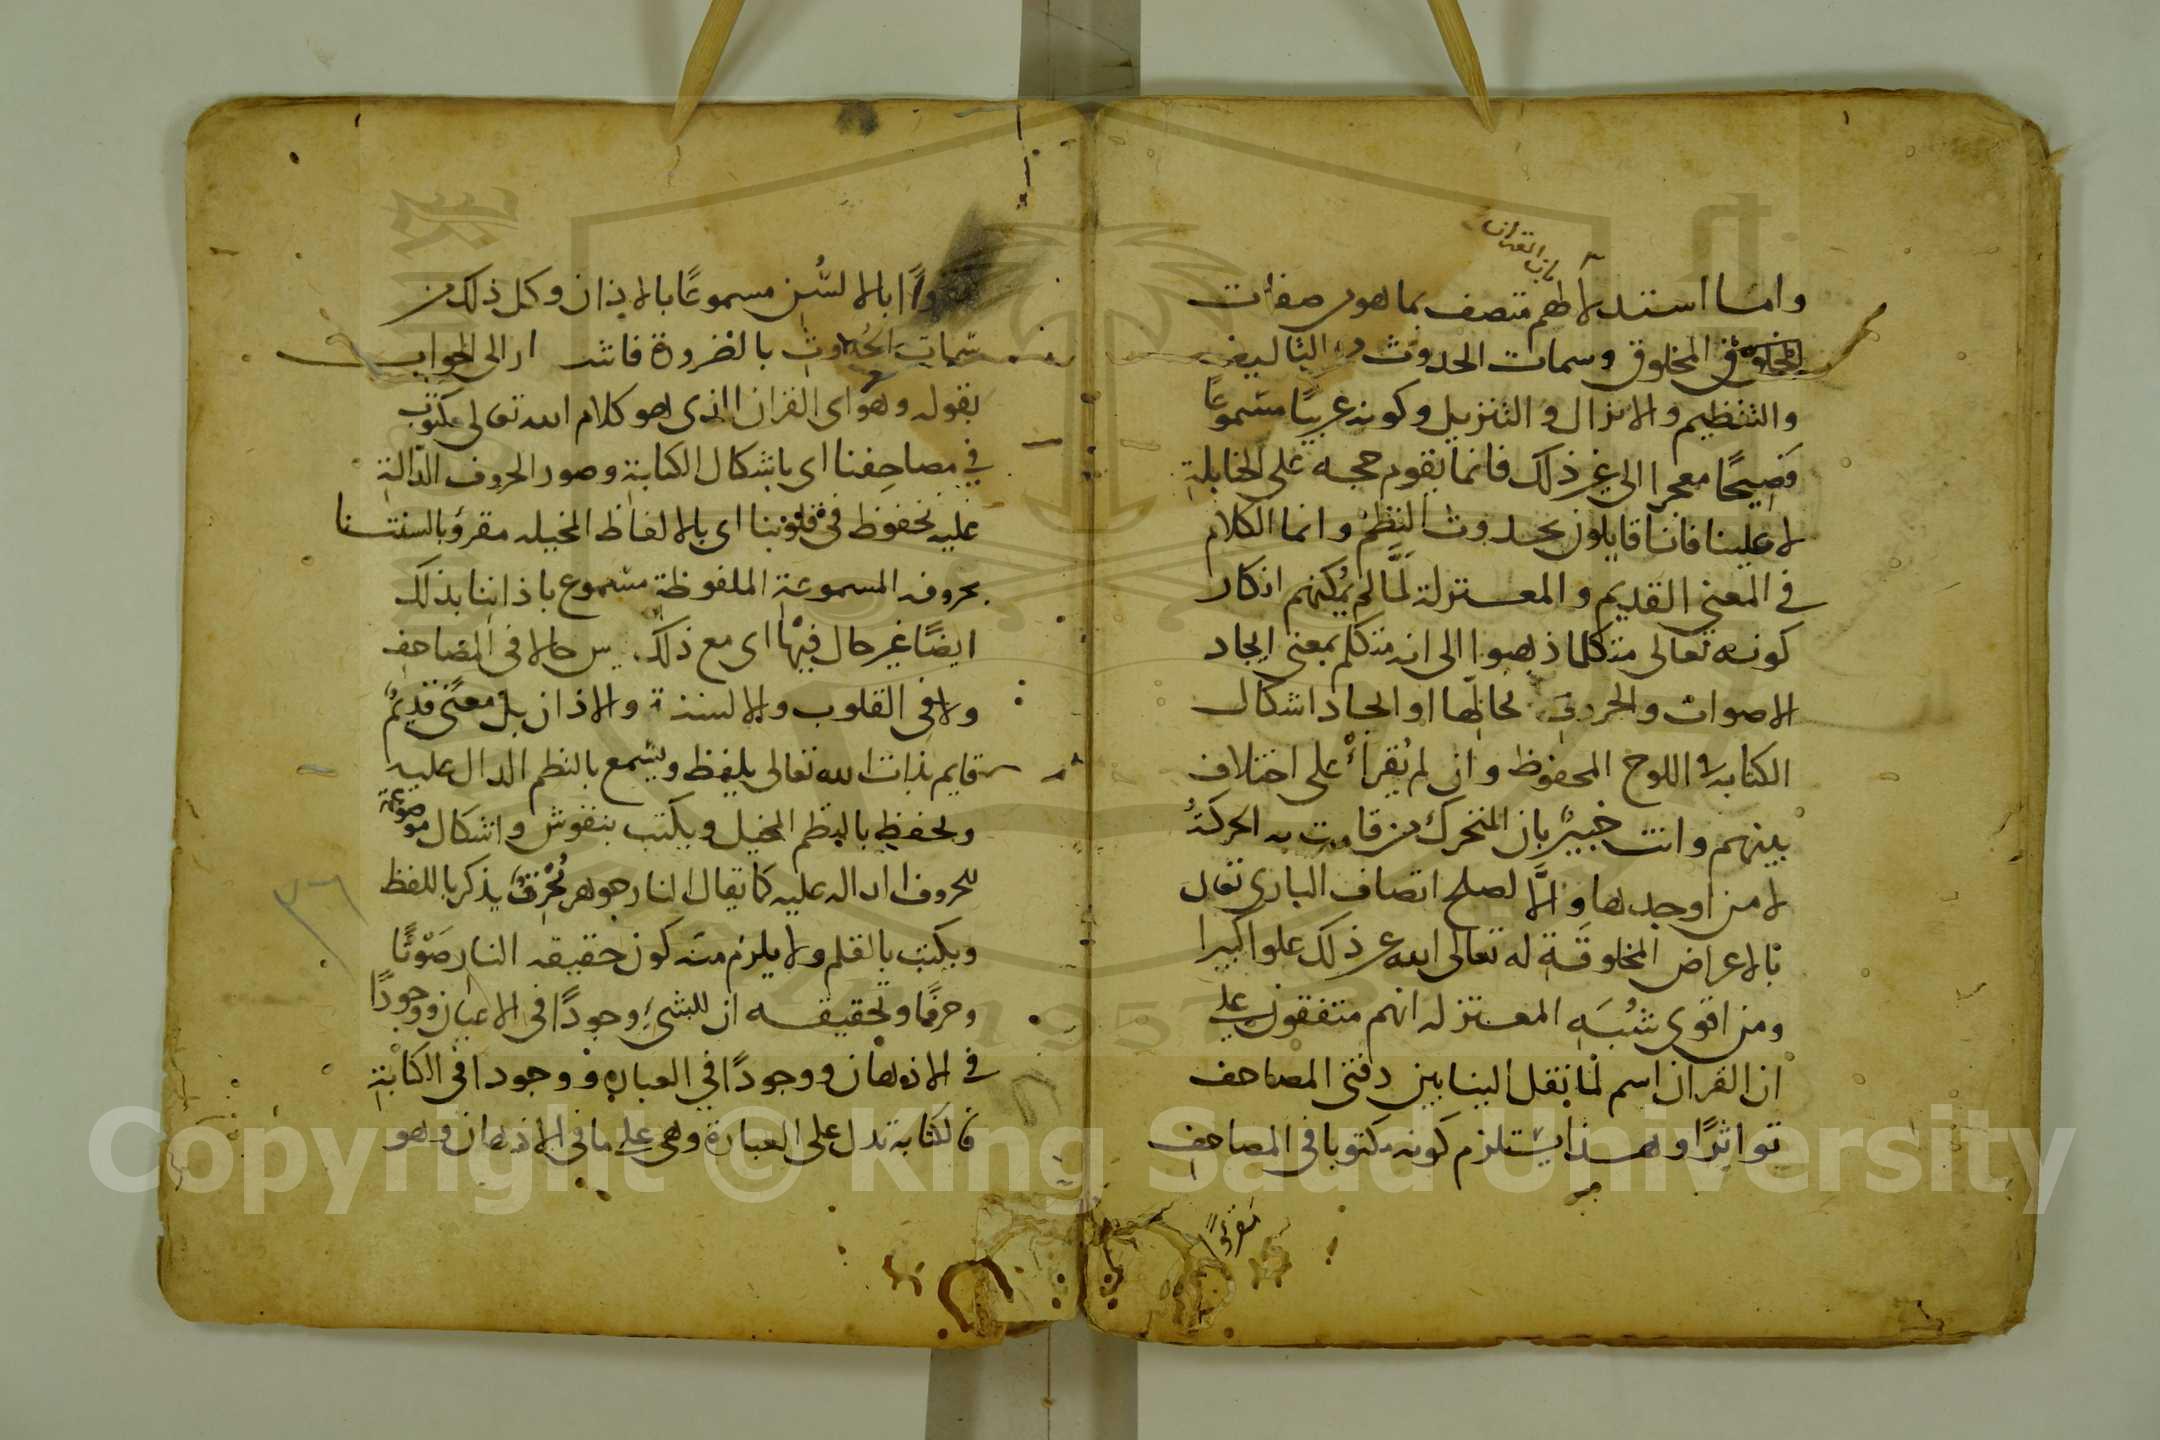 بان القران
واما استدلالهم متصف بما هو من صفات
المخلوق وسمات الحدوث من التاليف
والتنظيم والانزال والتنزيل وكونه عربيًا مسموعًا
فصيحًا معجزا الى غير ذلك فانما يقوم حجه على الحنابلة
لا علينا فانا قايلون بحدوث النظم وانما الكلام
في المعنى القديم والمعتزلة لمَّا لم يُمكنهم انكار
كونه تعالى متكلما ذهبوا الى انه متكلم بمعنى ايجاد
الاصوات والحروف في محالّها او ايجاد اشكال
الكتابه في اللوح المحفوظ وان لم يُقرأ على اختلاف
بينهم وانت خبيرٌ بان المتحرك من قامت به الحركةُ
لا من اوجدها والَّا لصلح اتصاف الباري تعالى
بالاعراض المخلوقَة له تعالى الله عن ذلك علوا كبيرا
ومن اقوى شُبَه المعتزله انهم متفقون على
ان القران اسم لما نقل الينا بين دفتى المصاحف
تواترًا وهذا يستلزم كونه مكتوبا في المصاحف
مقرؤًا
بالالسُن مسموعًا بالاذان وكل ذلك من
سمات الحُدوث بالضرورة فاشار الى الجواب
بقوله وهو اى القران الذى هو كلام الله تعالى مكتوب
في مصاحِفنا اى باشكال الكتابة وصور الحروف الدّالة
عليه محفوظ فى قلوبنا اى بالالفاظ المخيله مقروٌ بالسنتنا
بحروفه المسموعة الملفوظة مسموع باذاننا بذلك
ايضًا غير حال فيها اى مع ذلك ليس حالا فى المصاحف
ولا فى القلوب والالسنة والاذان بل معنًى قديمٌ
قايم بذات الله تعالى يلفظ ويسمع بالنظم الدال عليه
ويحفظ بالنظم المخيل ويكتب بنقوش واشكال موضوعة
للحروف الداله عليه كما يقال النار جوهر مُحْرِقٌ يذكر باللفظ
ويكتب بالقلم ولا يلزم منه كون حقيقه النار صَوْتًا
وحرفًا وتحقيقه ان للشىء وجودًا فى الاعيان ووجودًا
في الاذهان ووجودًا في العباره ووجودا فى الكتابة
فالكتابة تدل على العبارة وهى على ما فى الاذهان وهو
Copyright © King Saud University
1957